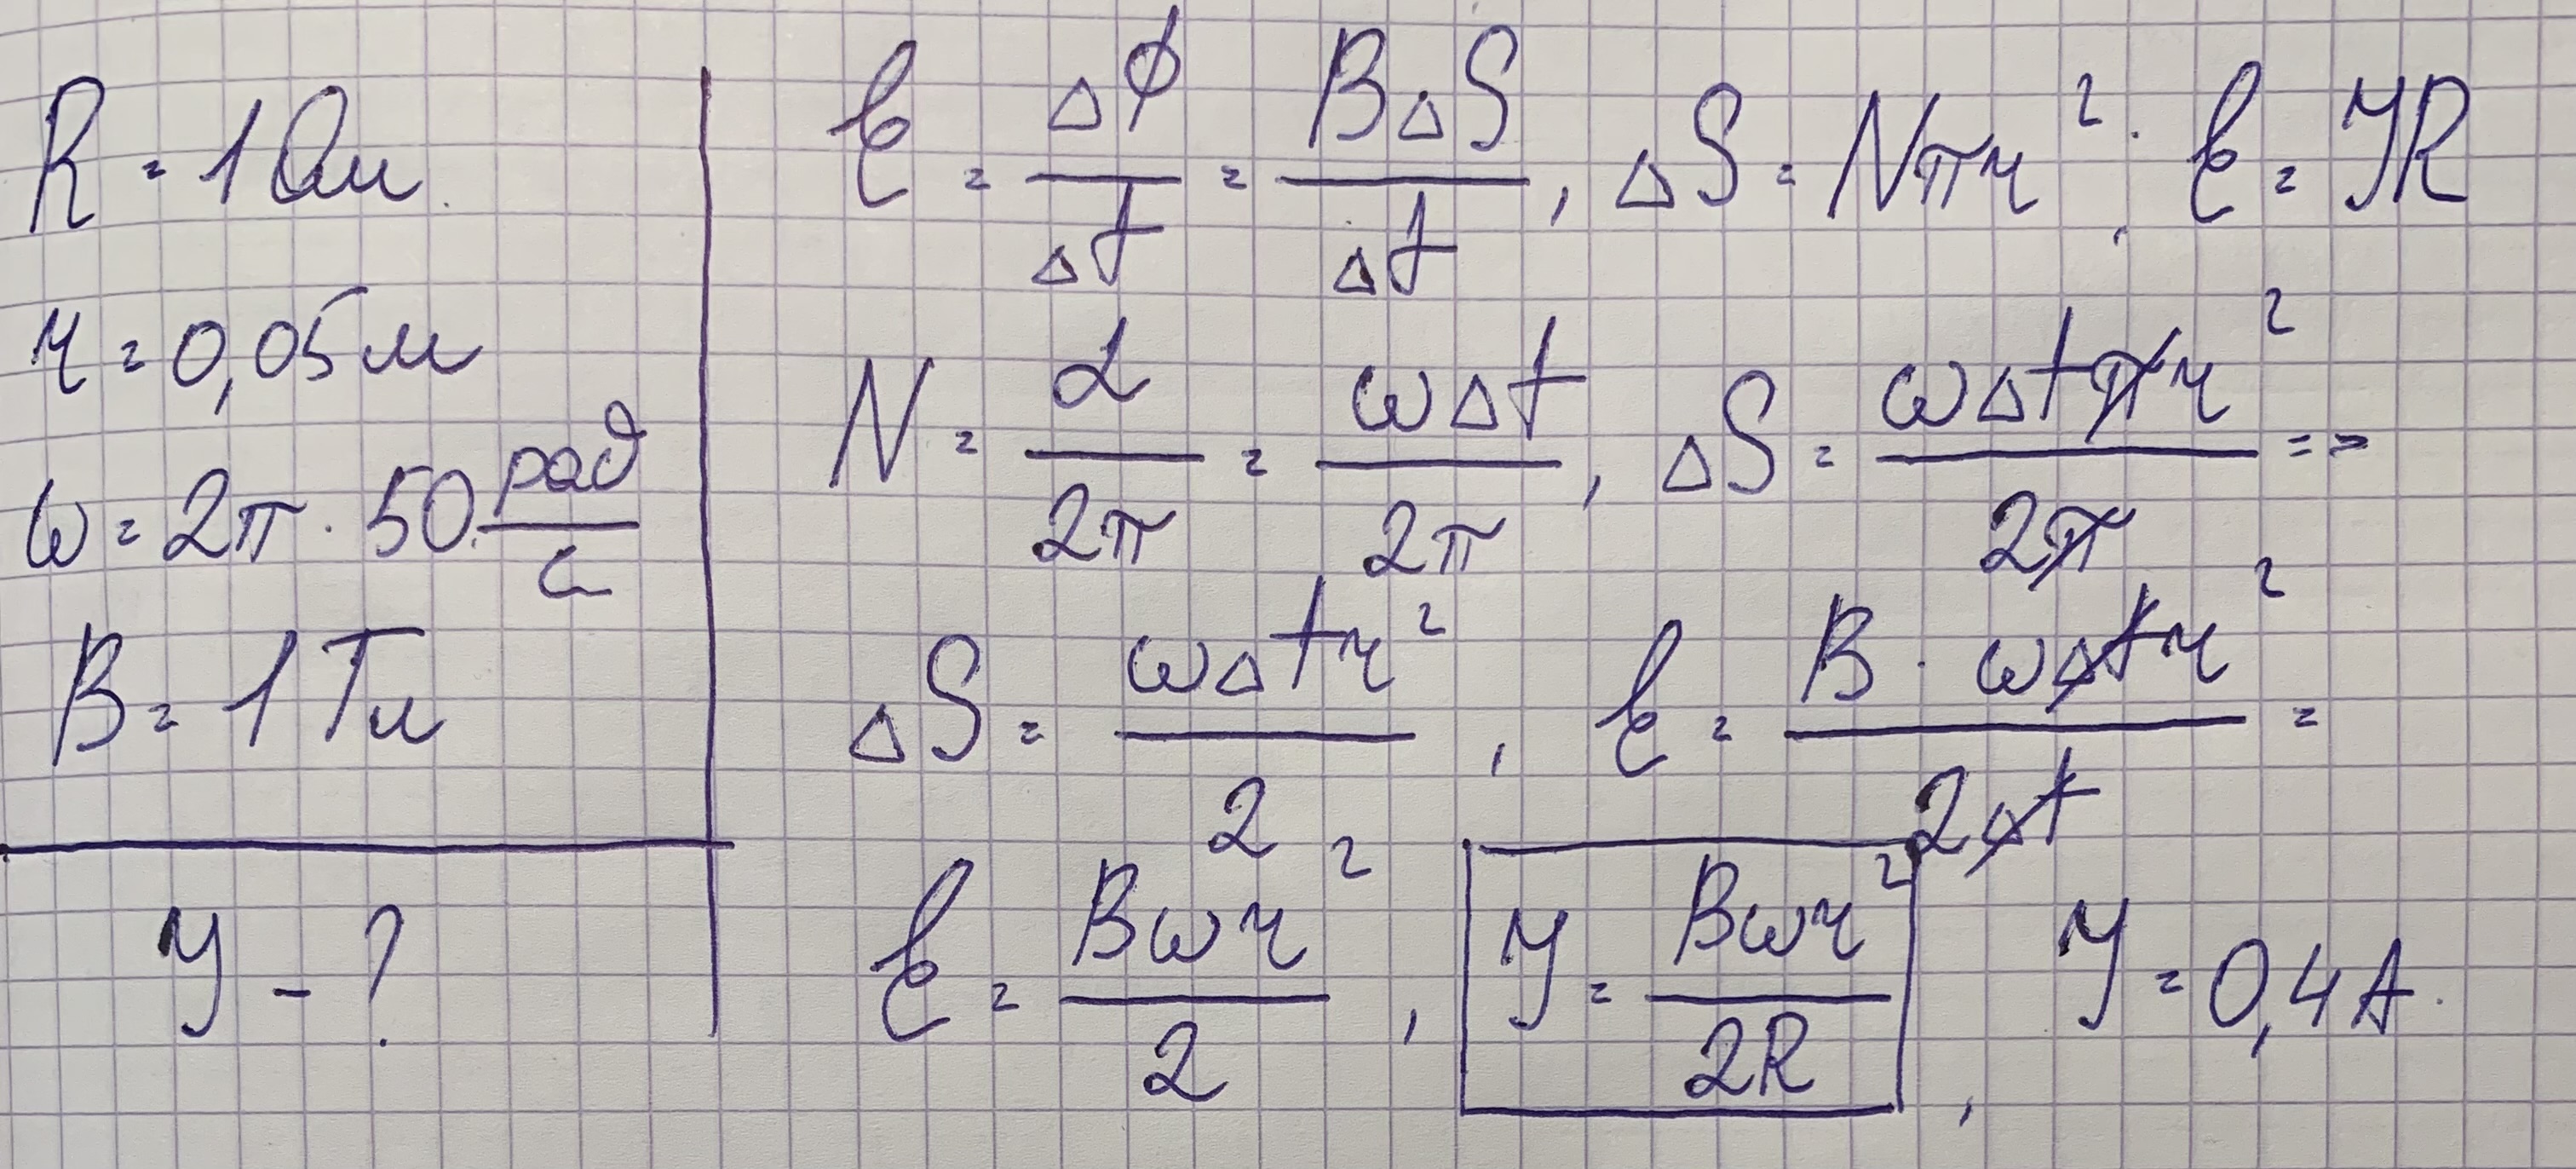 R = 1 Ом.
r = 0,05 м
ω = 2π · 50 рад/с
B = 1 Тл
I - ?
ℰ = ΔΦ/Δt = BΔS/Δt, ΔS = Nπr², ℰ = IR
N = α/2π = ωΔt/2π, ΔS = ωΔtπr²/2π =>
ΔS = ωΔtr²/2, ℰ = B · ωΔtr²/2Δt =
ℰ = Bωr²/2, I = Bωr²/2R, I = 0,4 А.